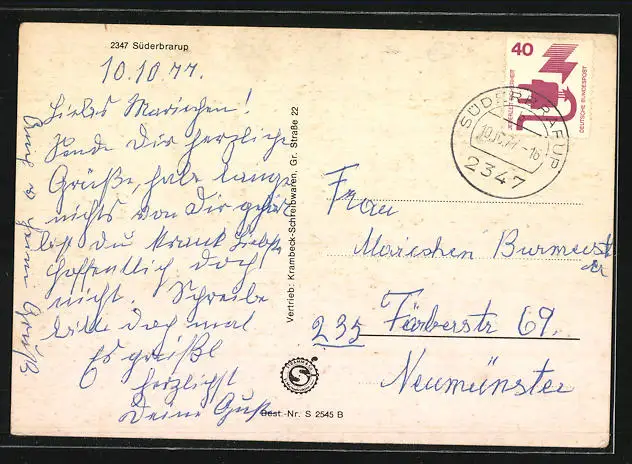 2347 Süderbrarup
10.10.77.
Liebes Mariechen!
Sende Dir herzliche
Grüße, habe lange
nichts von Dir gehört
bist du krank
hoffentlich doch
nicht. Schreibe
bitte doch mal
Es grüßt
herzlichst
Deine
Vertrieb: Krambeck-Schreibwaren, Gr. Straße 22
Best.-Nr. S 2545 B
40
DEUTSCHE BUNDESPOST
SÜDERBRARUP
2347
Frau
Mariechen Burmeister
235 Färberstr 69.
Neumünster